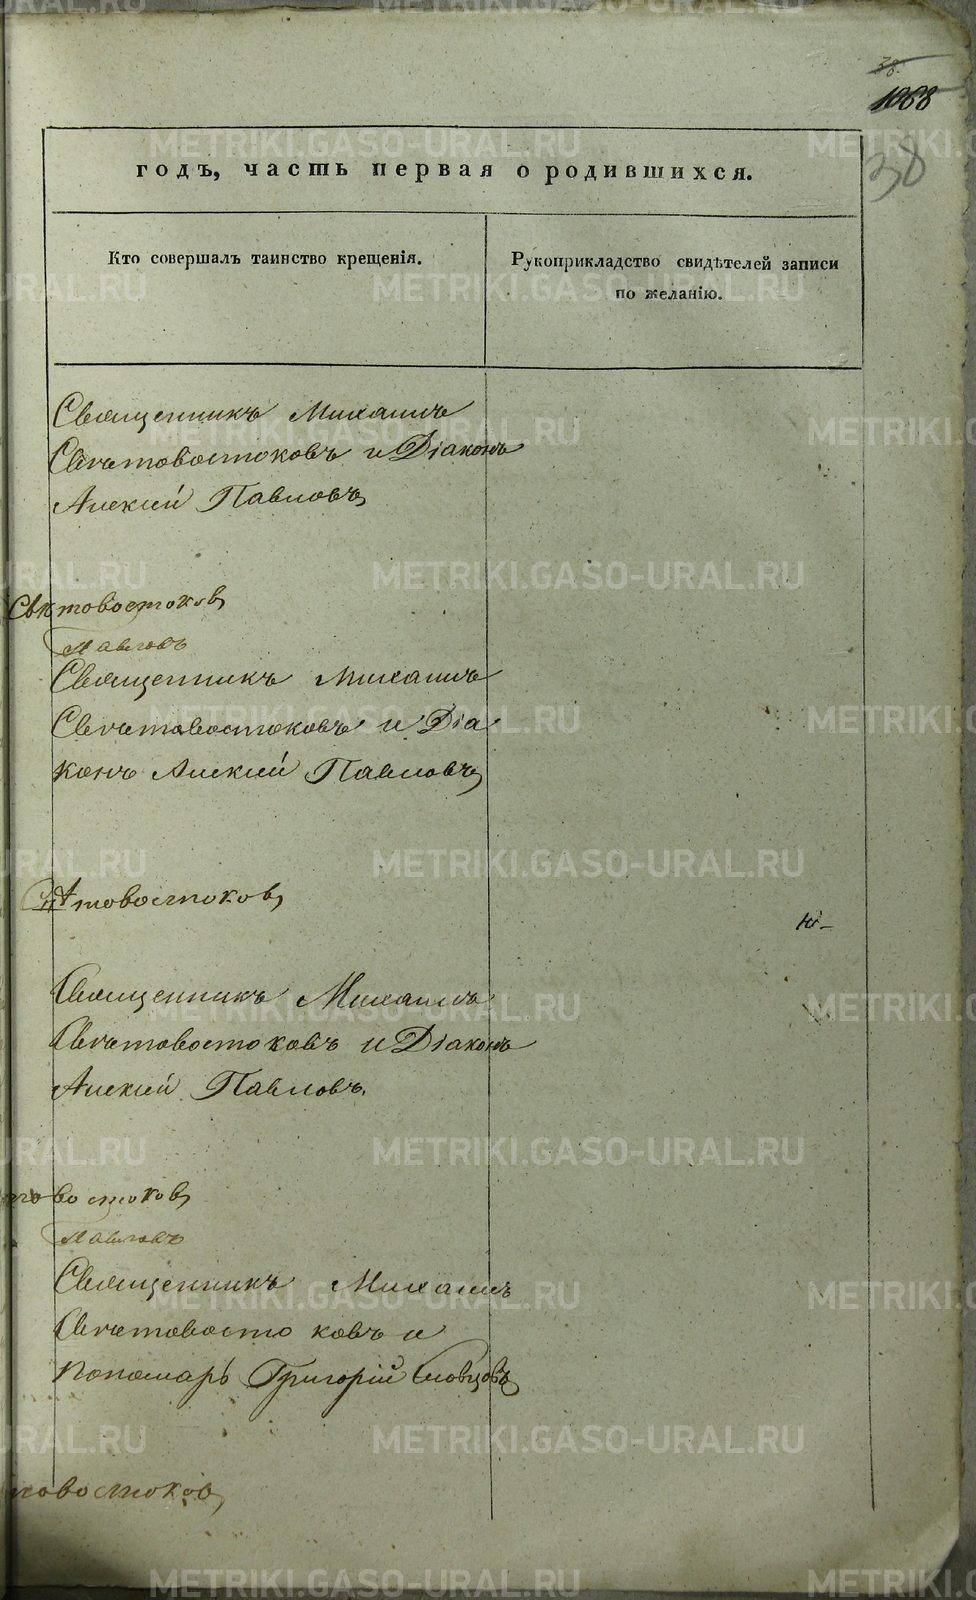 38.
1068
38
годъ, часть первая о родившихся.
Кто совершалъ таинство крещенія.
Рукоприкладство свидѣтелей записи
по желанію.
Священникъ Михаилъ
Свѣтовостоковъ и Діаконъ
Алексій Павловъ
Свѣтовостоковъ
Павловъ
Священникъ Михаилъ
Свѣтовостоковъ и Діа
конъ Алексій Павловъ
Свѣтовостоковъ
Священникъ Михаилъ
Свѣтовостоковъ и Діаконъ
Алексій Павловъ.
товостоковъ
Павловъ
Священникъ Михаилъ
Свѣтовостоковъ и
пономарь Григорій Словцовъ
товостоковъ
METRIKI.GASO-URAL.RU